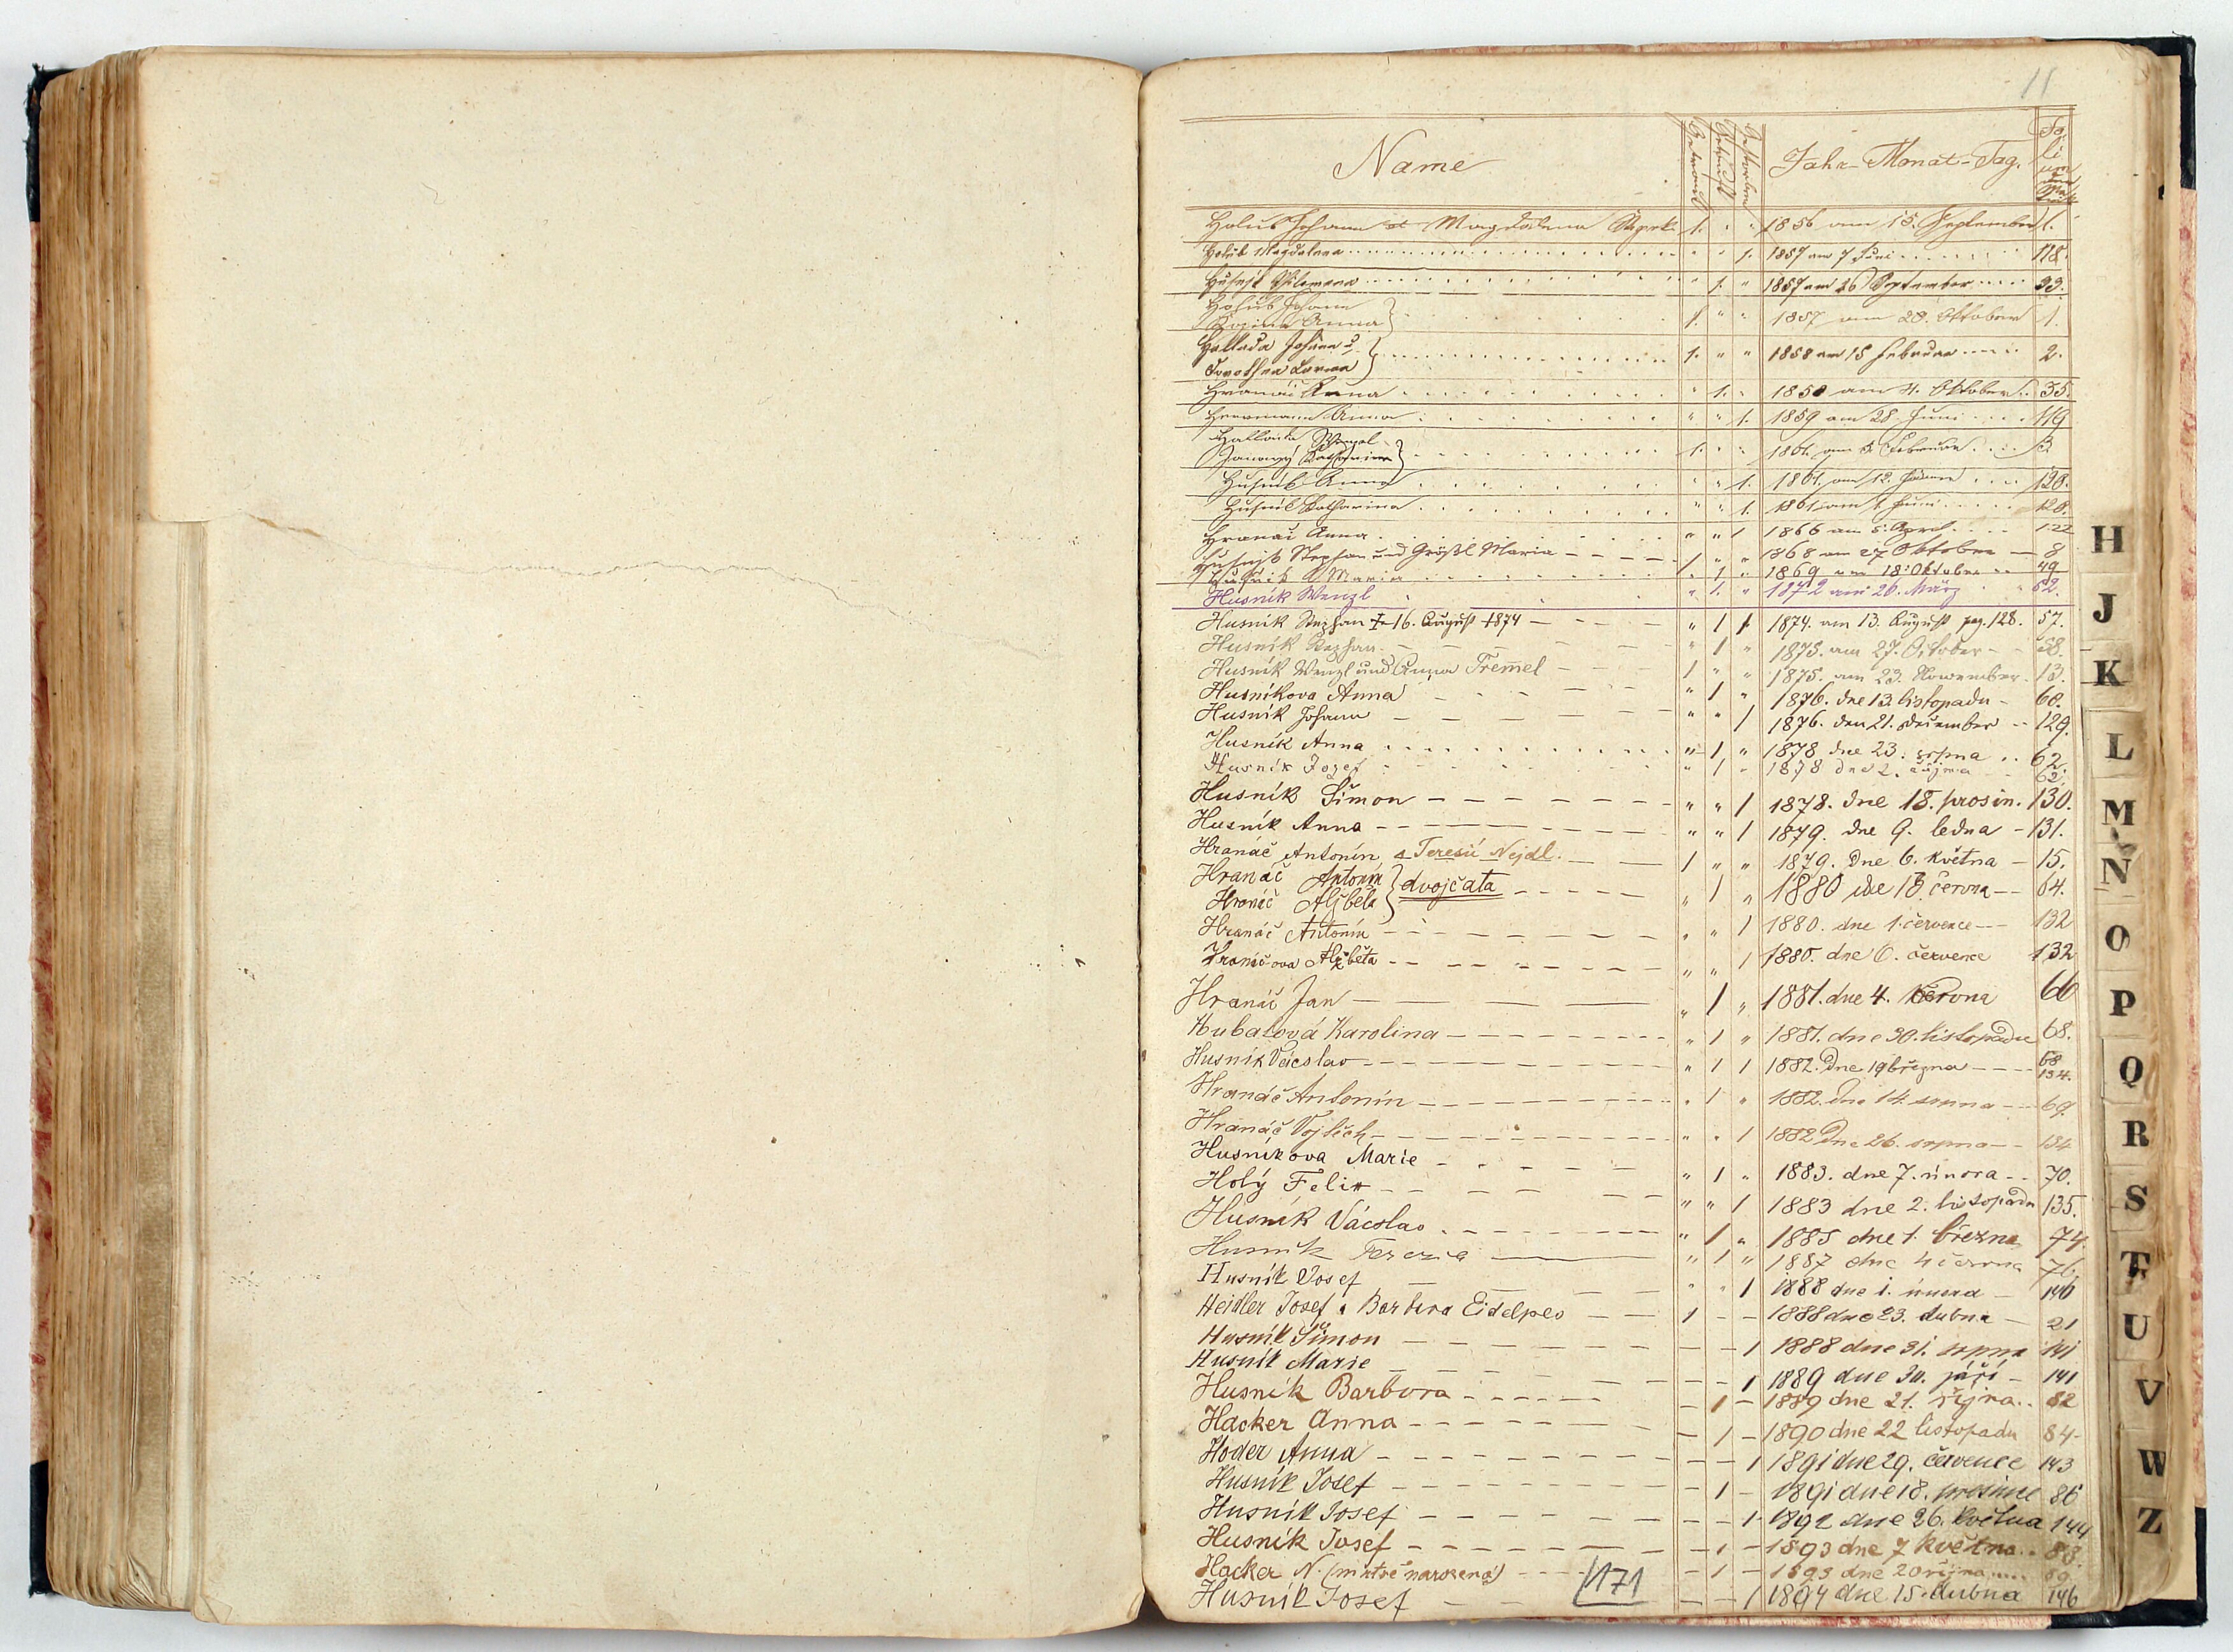 11
Name Getraut Getauft Gestorben Jahr-Monat-Tag. Folium
Holub Johann et Magdalena 1. " " 1856 am 15. September 1.
Holub Magdalena " " 1. 1857 am 7 Juni 118.
Husnik Philomena " 1. " 1857 am 26 September 33.
Holub Johann
Anna } 1. " " 1857 am 28. Oktober 1.
Hallada Johann &
Dorothea } 1. " " 1858 am 15 Februar 2.
Hranáč Anna " 1. " 1858 am 4. Oktober 35.
Herrmann Anna " " 1. 1859 am 28 Juni 119
Hallada Wenzel
Katharina } 1. " " 1861 am 5 Februar 3
Husnik Anna " " 1. 1861 am 12. Jänner 120.
Husnik Katharina " " 1. 1861 am Juni 120.
Hranáč Anna " " 1 1866 am 5. April 122
Husnik Stephan und Größl Maria 1 " " 1868 am 27 Oktober 8
Husnik Maria " 1. " 1869 am 18. Oktober 49
Husník Wenzl " 1. " 1872 am 26. März 52.
Husník Stephan † 16. August 1874 " 1 1 1874. am 13. August pag. 128. 57.
Husník Stephan " 1 " 1875. am 27. October 58.
Husník Wenzl und Anna Tremel 1 " " 1875. am 23. November. 13.
Husníkova Anna " 1 " 1876. dne 13. listopadu 60.
Husník Johann " " 1 1876. den 21. December 129.
Husník Anna " 1 " 1878 dne 23. srpna 62.
Husník Jozef " 1 " 1878 dne 2. října 62.
Husník Šimon " " 1 1878. dne 18. prosin. 130.
Husník Anna " " 1 1879. dne 9. ledna 131.
Hranáč Antonín a Teresií Nejdl. 1 " " 1879. Dne 6. května 15.
Hranáč Antonín
Hranáč Aljběta } dvojčata " 1 " 1880 dne 18. června 64.
Hranáč Antonín " " 1 1880. dne 1. července 132
Hranáčova Aljběta " " 1 1880. dne 6. července 132
Hranáč Jan " 1 " 1881. dne 4. června 66
Hubalová Karolina " 1 " 1881. dne 30. listopadu 68.
Husník Václav " 1 1 1882. Dne 19 března 68 134.
Hranáč Antonín " 1 " 1882. Dne 14. srpna 69.
Hranáč Vojtěch " " 1 1882 Dne 26. srpna 134
Husníkova Marie " 1 " 1883. dne 7. února 70.
Holý Felix " " 1 1883 dne 2. listopadu 135.
Husník Václav " 1 " 1885 dne 1. března 74.
Husník Terezie " 1 " 1887 dne 4 června 76
Husník Josef " " 1 1888 dne 1. února 140
Heidler Josef a Barbora Eidelpes 1 - - 1888 dne 23. dubna 21
Husník Šimon - - 1 1888 dne 31. srpna 141
Husník Marie - - 1 1889 dne 30. září 141
Husník Barbora - 1 - 1889 dne 21. října 82
Hacker Anna - 1 - 1890 dne 22 listopadu 84
Hoder Anna - - 1 1891 dne 29. července 143
Husník Josef - 1 - 1891 dne 18. prosince 86
Husník Josef - - 1 1892 dne 26. května 144
Husník Josef - 1 - 1893 dne 7 května 88.
Hacker N. (mrtvě narozená) - 1 - 1893 dne 20 října
Husník Josef - - 1 1894 dne 15. dubna 146
171
H
J
K
L
M
N
O
P
Q
R
S
T
U
V
W
Z